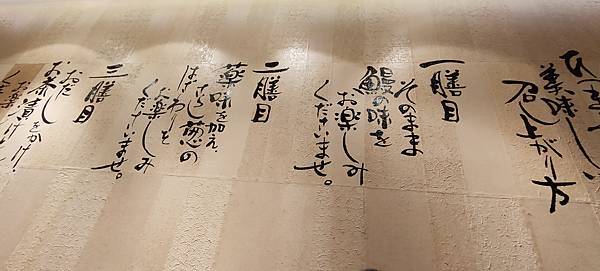 美味しい
召し上がり方
一膳目
そのまま
鰻の味を
お楽しみ
くださいませ。
二膳目
薬味を加え、
さらし葱の
はざわりを
お楽しみ
くださいませ。
三膳目
おだし
お茶漬をかけ、